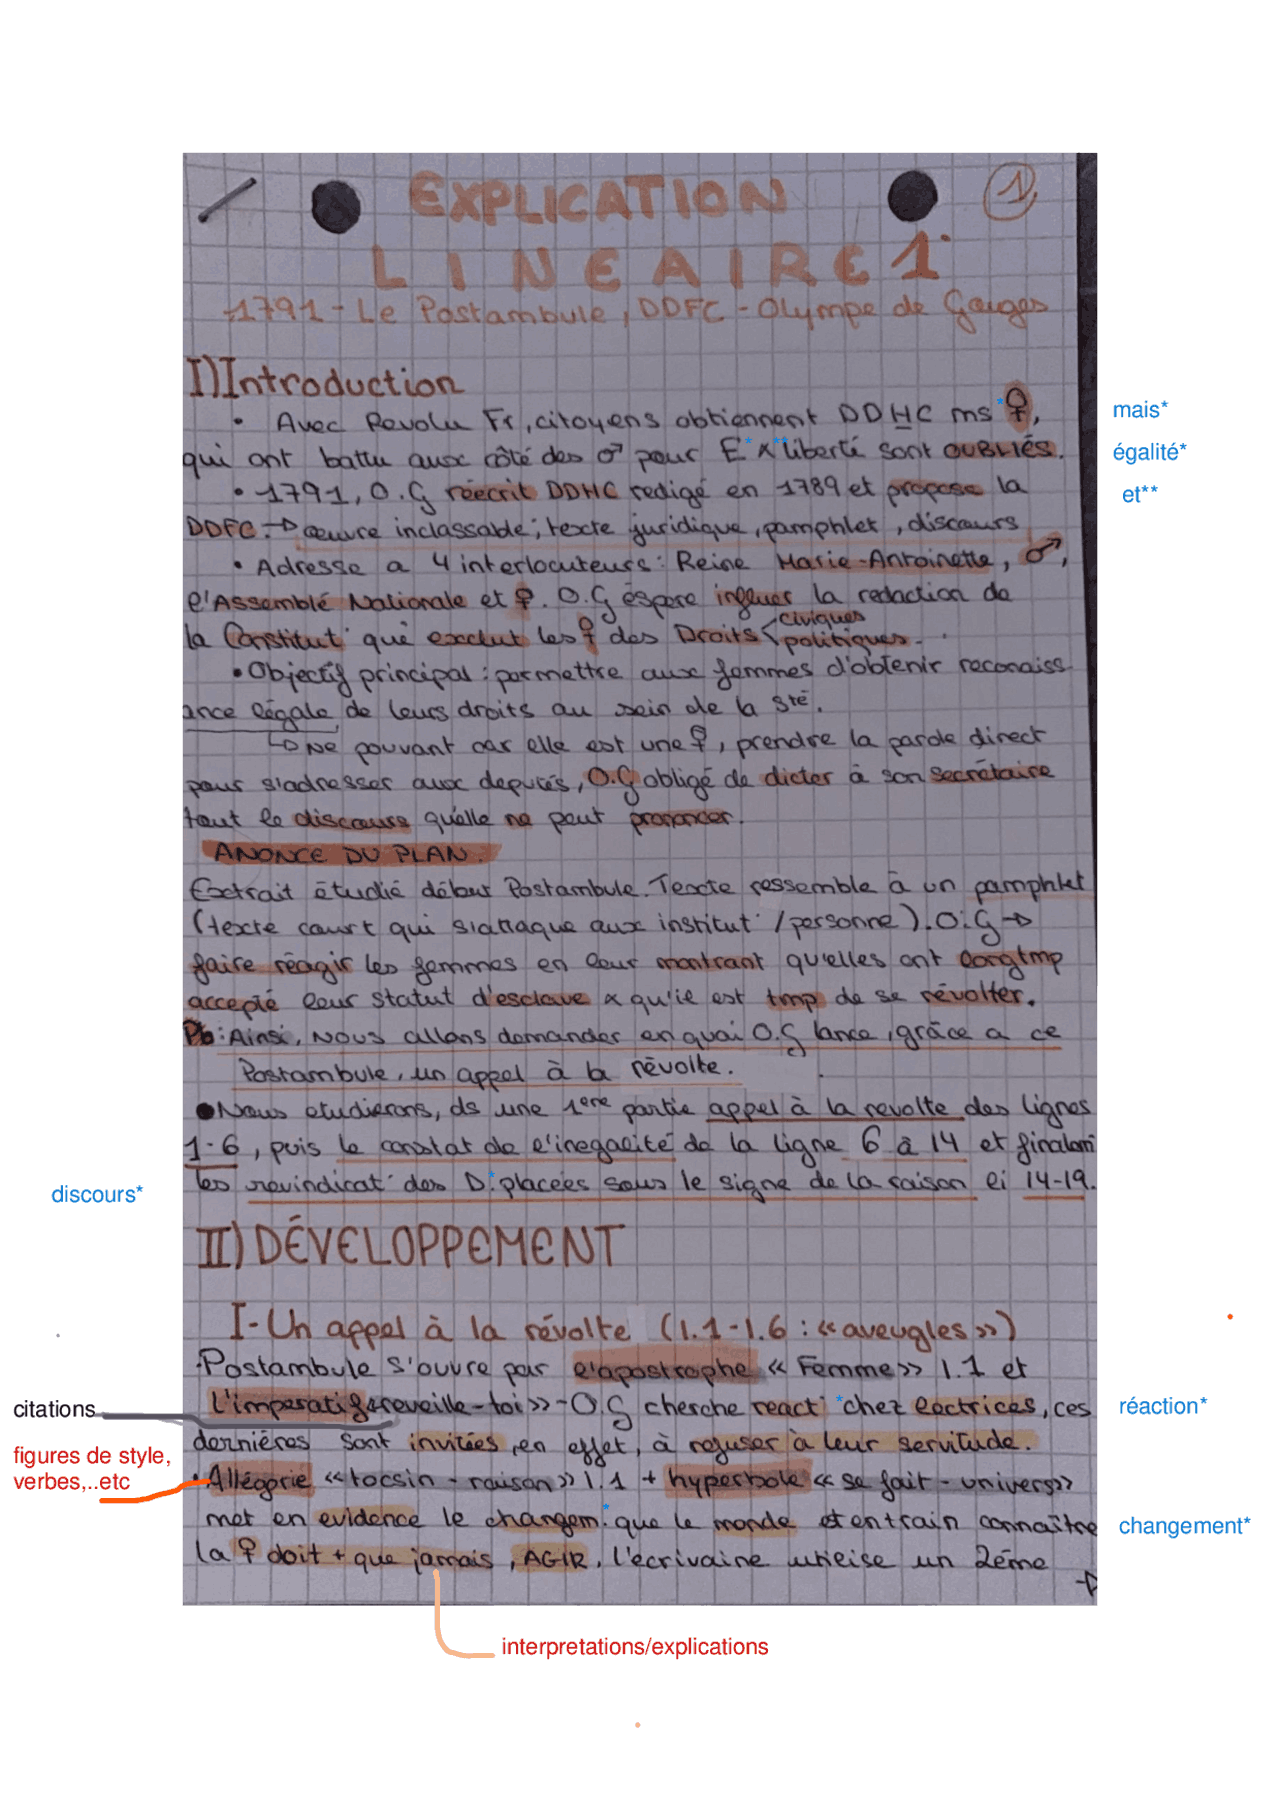 EXPLICATION
1
LINEAIRE 1
1791 - Le Postambule, DDFC - Olympe de Gouges
I) Introduction
• Avec Revolu Fr, citoyens obtiennent DDHC ms* ♀,
mais*
qui ont battu aux côté des ♂ pour E* &** liberté sont OUBLIÉS.
égalité*
• 1791, O.G réecrit DDHC redigé en 1789 et propose la
et**
DDFC. → œuvre inclassable; texte juridique, pamphlet, discours
• Adresse a 4 interlocuteurs: Reine Marie-Antoinette, ♂,
l'Assemblé Nationale et ♀. O.G éspere influer la redaction de
la Constitut° qui exclut les ♀ des Droits < civiques
politiques.
• Objectif principal: permettre aux femmes d'obtenir reconaiss
ance légale de leurs droits au sein de la sté.
↳ Ne pouvant car elle est une ♀, prendre la parole direct
pour s'adresser aux deputés, O.G obligé de dicter à son secrétaire
tout le discours qu'elle ne peut prononcer.
ANONCE DU PLAN.
Extrait étudié début Postambule. Texte ressemble à un pamphlet
(texte court qui s'attaque aux institut° / personne). O.G →
faire réagir les femmes en leur montrant qu'elles ont longtmp
accepté leur statut d'esclave & qu'il est tmp de se révolter.
Pb: Ainsi, nous allons demander en quoi O.G lance, grâce a ce
Postambule, un appel à la révolte.
• Nous etudierons, ds une 1ere partie appel à la revolte des lignes
1-6, puis le constat de l'inegalité de la ligne 6 à 14 et finalem
les revindicat° des D.* placées sous le signe de la raison li 14-19.
discours*
II) DÉVELOPPEMENT
I- Un appel à la révolte (l.1-l.6: «aveugles»)
· Postambule s'ouvre par l'apostrophe «Femme» l.1 et
l'imperatif «reveille-toi» - O.G cherche react° *chez lectrices, ces
citations
réaction*
dernières sont invitées, en effet, à refuser à leur servitude.
figures de style,
verbes,..etc
· Allégorie «tocsin - raison» l.1 + hyperbole «se fait - univers»
met en evidence le changem.* que le monde et entrain connaître
changement*
la ♀ doit + que jamais, AGIR, l'ecrivaine utilise un 2ème
→
interpretations/explications